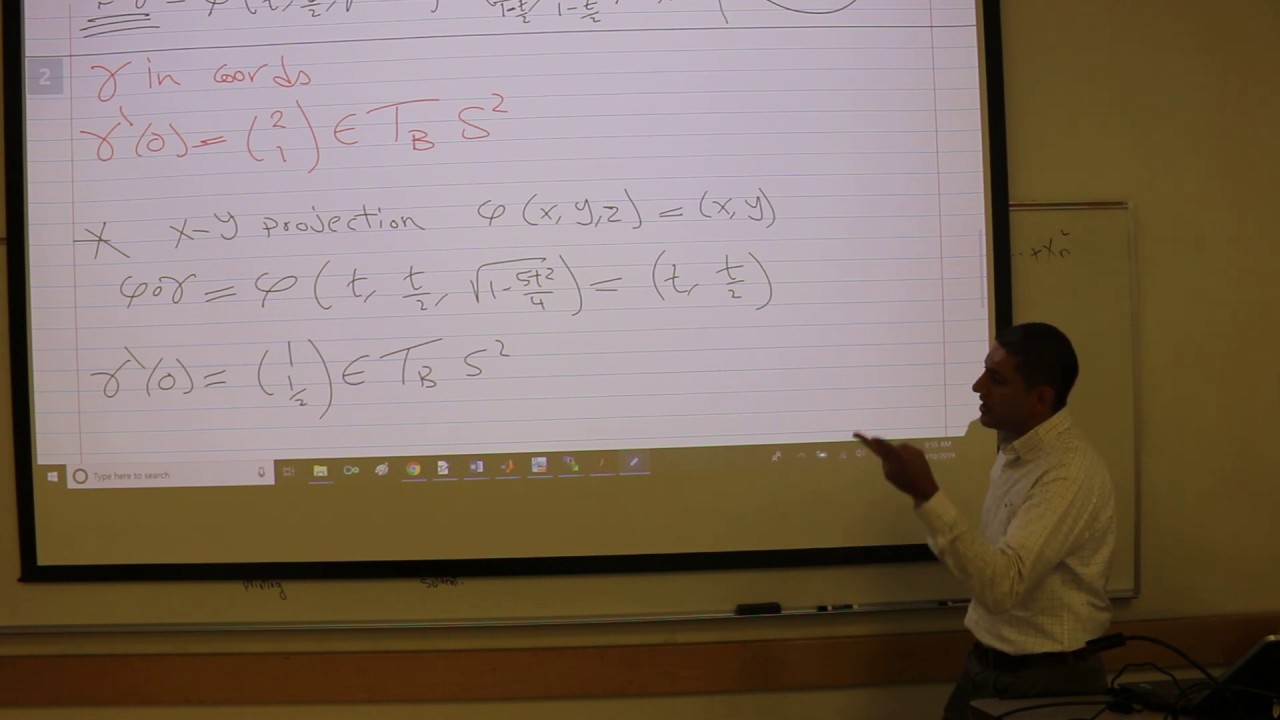 2
γ in coords
γ'(0) = (2 1) ∈ T_B S²
X x-y projection φ(x, y, z) = (x, y)
φ∘γ = φ(t, t/2, √1-5t²/4) = (t, t/2)
γ'(0) = (1 1/2) ∈ T_B S²
Type here to search
...+Xn²